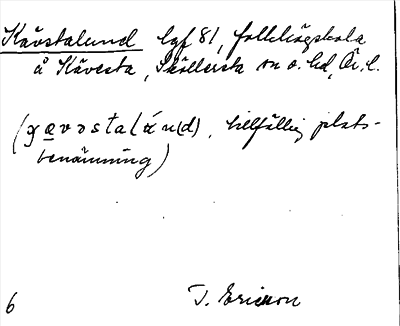 Kävstalund lgf 81, folkhögskola
å Kävesta, Sköllersta sn o. hd, Ör. l.
(ɣævəstalún(d), tillfällig plats-
benämning)
6 T. Ericsson